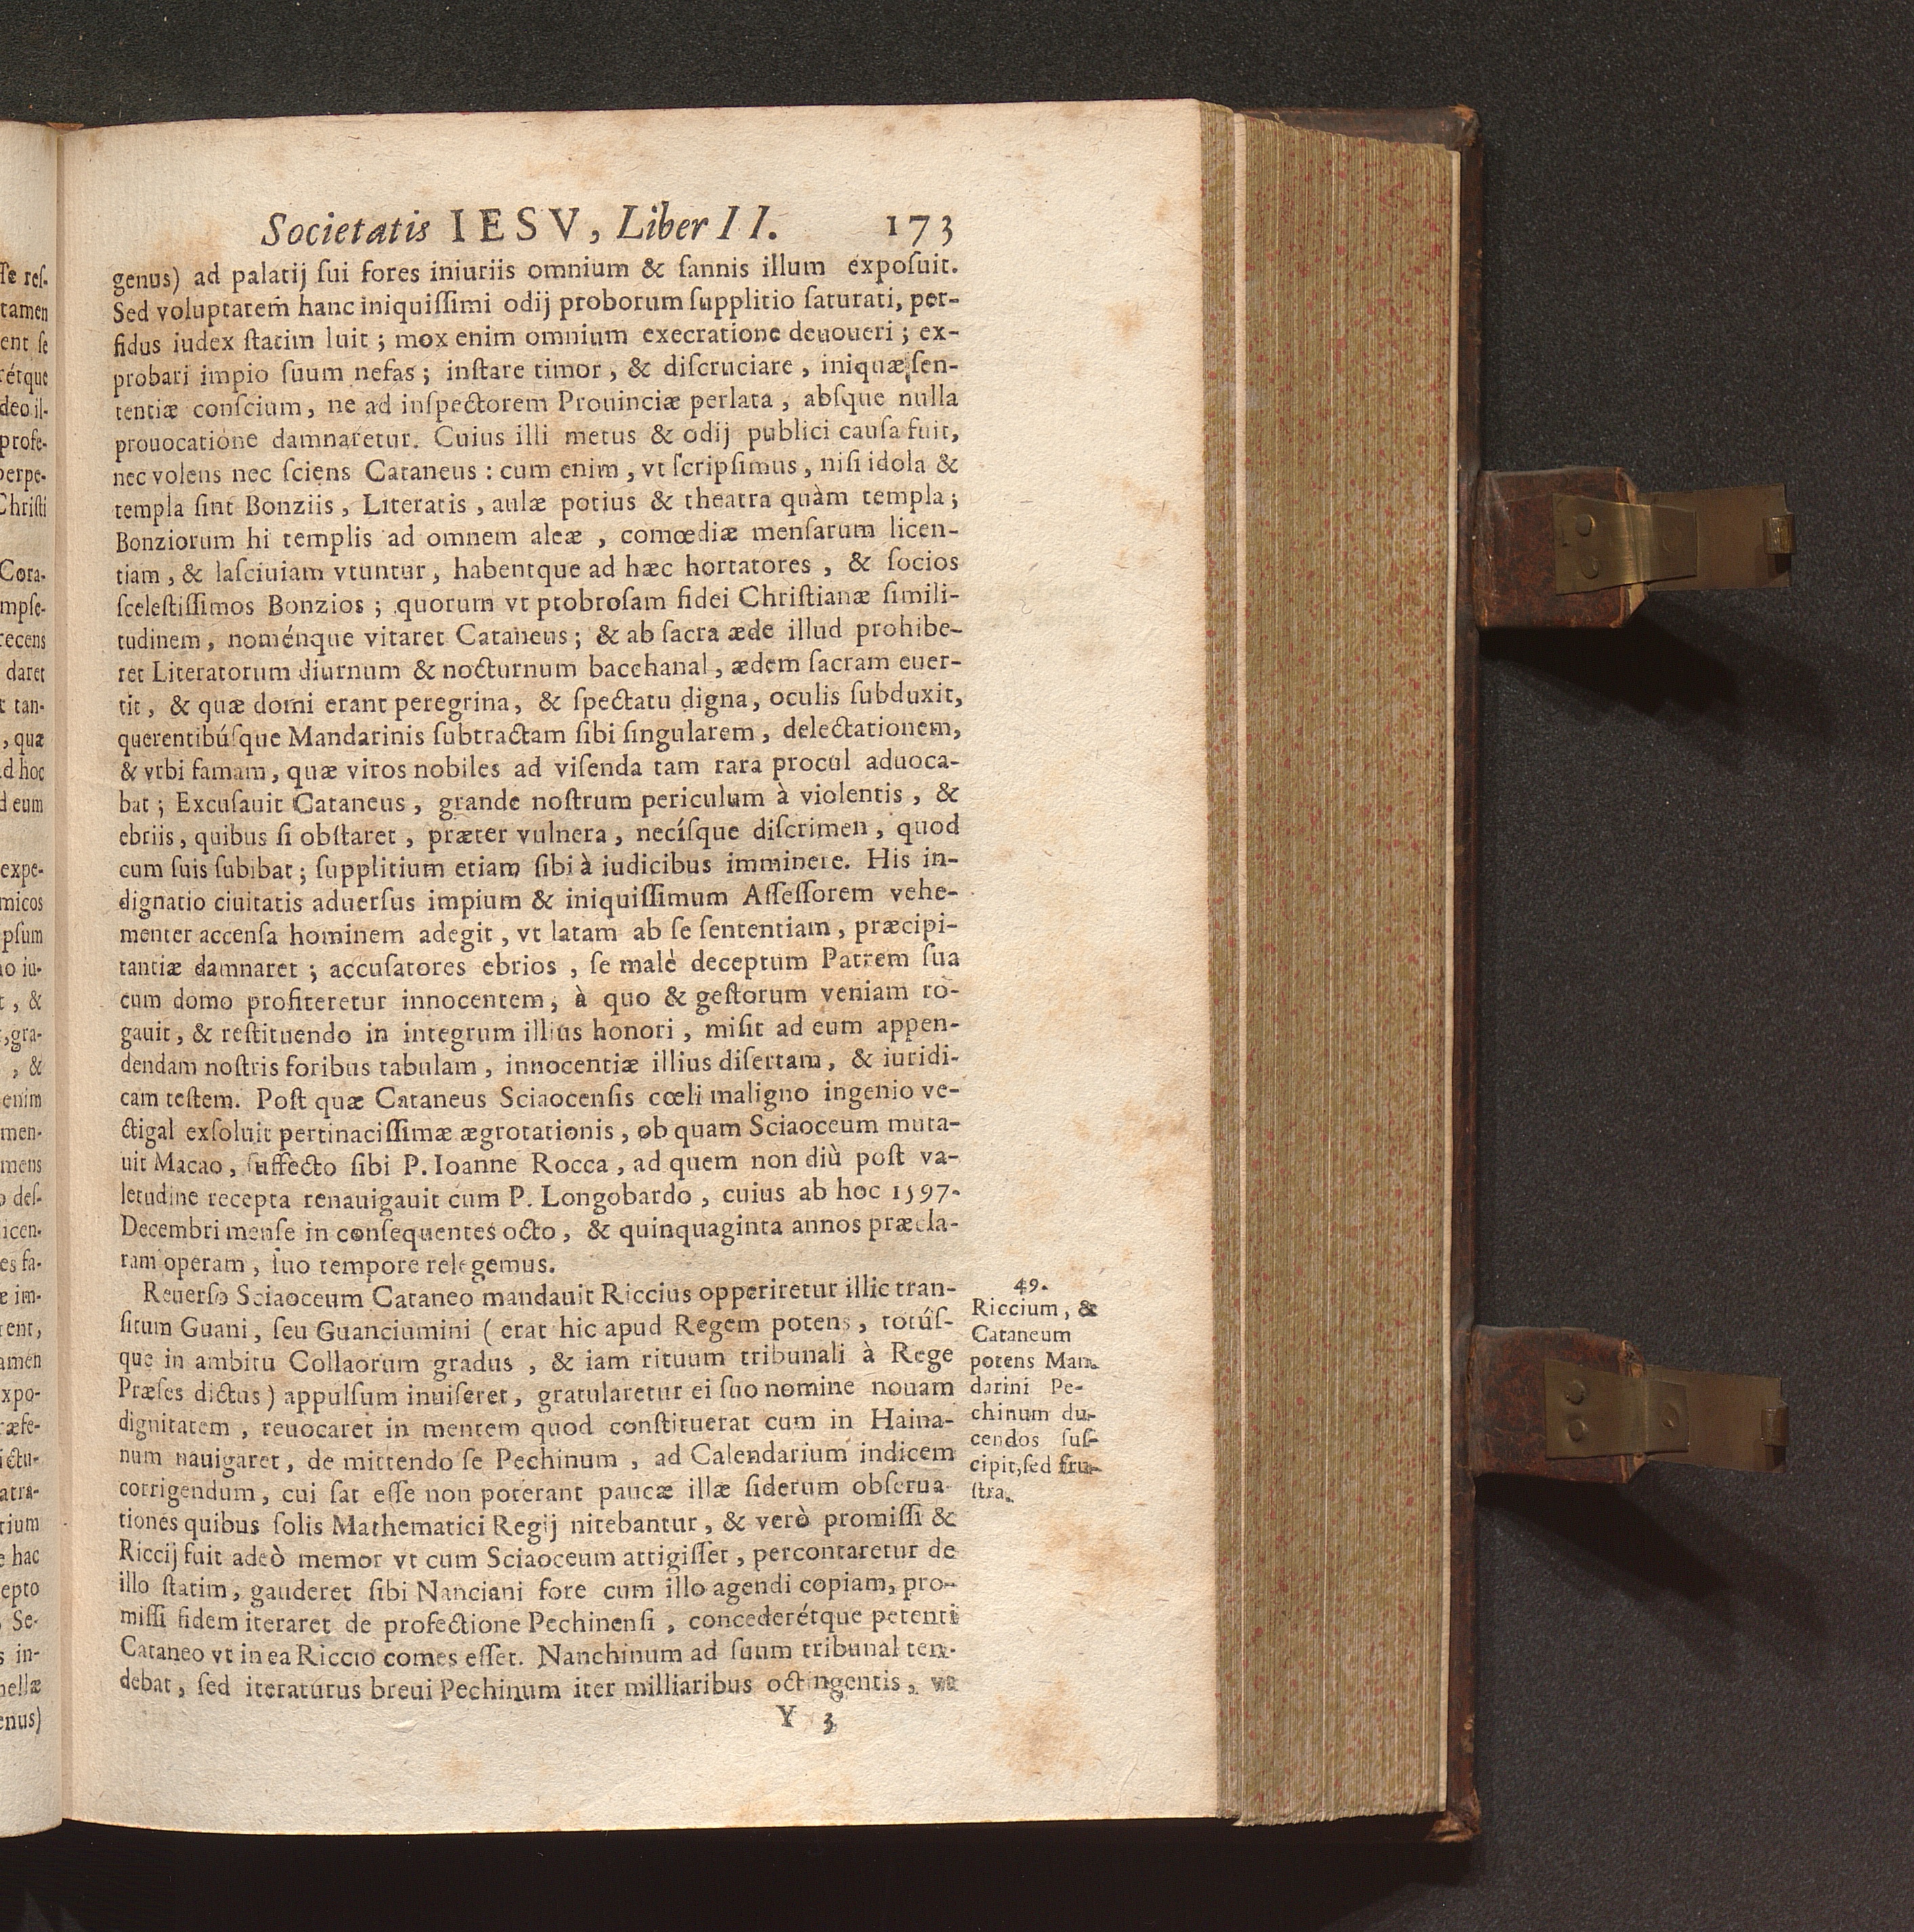 Societatis IESV, Liber II. 173
genus) ad palatij sui fores iniuriis omnium & sannis illum exposuit.
Sed voluptatem hanc iniquissimi odij proborum supplitio saturati, per-
fidus iudex statim luit ; mox enim omnium execratione deuoueri ; ex-
probari impio suum nefas ; instare timor , & discruciare , iniquæ sen-
tentiæ conscium , ne ad inspectorem Prouinciæ perlata , absque nulla
prouocatione damnaretur. Cuius illi metus & odij publici causa fuit,
nec volens nec sciens Cataneus : cum enim , vt scripsimus , nisi idola &
templa sint Bonziis , Literatis , aulæ potius & theatra quàm templa ;
Bonziorum hi templis ad omnem aleæ , comœdiæ mensarum licen-
tiam , & lasciuiam vtuntur , habentque ad hæc hortatores , & socios
scelestissimos Bonzios ; quorum vt probrosam fidei Christianæ simili-
tudinem , noménque vitaret Cataneus ; & ab sacra æde illud prohibe-
ret Literatorum diurnum & nocturnum bacchanal , ædem sacram euer-
tit , & quæ domi erant peregrina , & spectatu digna , oculis subduxit,
querentibúsque Mandarinis subtractam sibi singularem , delectationem,
& vrbi famam , quæ viros nobiles ad visenda tam rara procul aduoca-
bat ; Excusauit Cataneus , grande nostrum periculum à violentis , &
ebriis , quibus si obstaret , præter vulnera , necísque discrimen , quod
cum suis subibat ; supplitium etiam sibi à iudicibus imminere. His in-
dignatio ciuitatis aduersus impium & iniquissimum Assessorem vehe-
menter accensa hominem adegit , vt latam ab se sententiam , præcipi-
tantiæ damnaret ; accusatores ebrios , se malè deceptum Patrem sua
cum domo profiteretur innocentem , à quo & gestorum veniam ro-
gauit , & restituendo in integrum illius honori , misit ad eum appen-
dendam nostris foribus tabulam , innocentiæ illius disertam , & iuridi-
cam testem. Post quæ Cataneus Sciaocensis cœli maligno ingenio ve-
ctigal exsoluit pertinacissimæ ægrotationis , ob quam Sciaoceum muta-
uit Macao , suffecto sibi P. Ioanne Rocca , ad quem non diù post va-
letudine recepta renauigauit cum P. Longobardo , cuius ab hoc 1597.
Decembri mense in consequentes octo , & quinquaginta annos præcla-
ram operam , suo tempore relegemus.
Reuerso Sciaoceum Cataneo mandauit Riccius opperiretur illic tran-
situm Guani , seu Guanciumini ( erat hic apud Regem potens , totús-
que in ambitu Collaorum gradus , & iam rituum tribunali à Rege
Præses dictus ) appulsum inuiseret , gratularetur ei suo nomine nouam
dignitatem , reuocaret in mentem quod constituerat cum in Haina-
num nauigaret , de mittendo se Pechinum , ad Calendarium indicem
corrigendum , cui sat esse non poterant paucæ illæ siderum obserua-
tiones quibus solis Mathematici Regij nitebantur , & verò promissi &
Riccij fuit adeò memor vt cum Sciaoceum attigisset , percontaretur de
illo statim , gauderet sibi Nanciani fore cum illo agendi copiam , pro-
missi fidem iteraret de profectione Pechinensi , concederétque petenti
Cataneo vt in ea Riccio comes esset. Nanchinum ad suum tribunal ten-
debat , sed iteraturus breui Pechinum iter milliaribus octingentis ,
Y 3
49.
Riccium , &
Cataneum
potens Man-
darini Pe-
chinum du-
cendos sus-
cipit, sed fru-
stra.